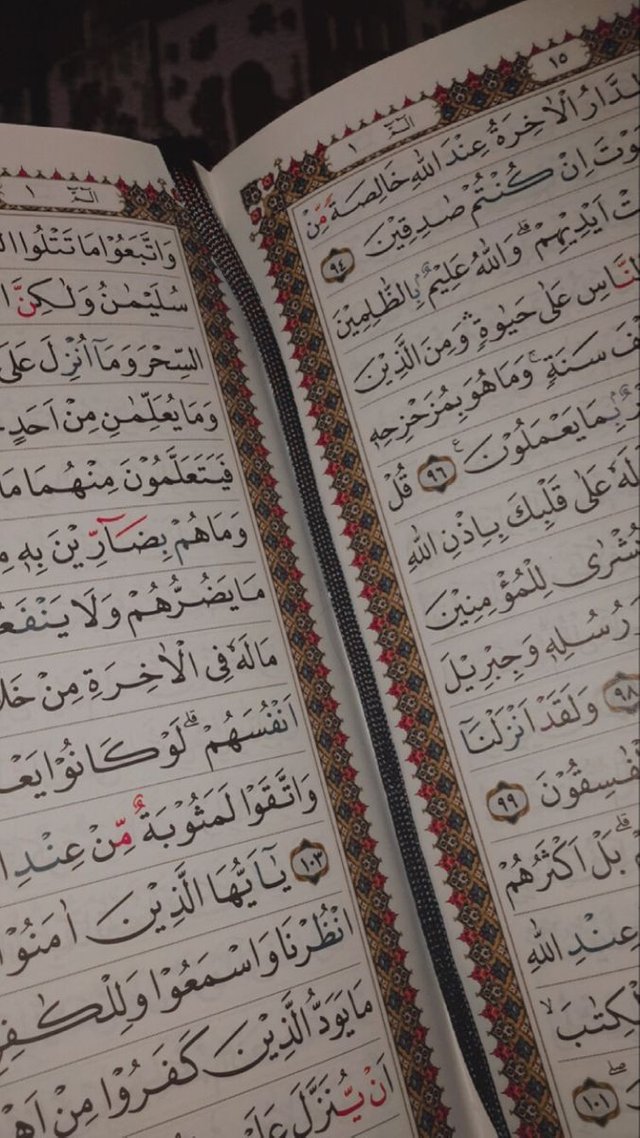 ١٥
الٓمّٓ ١
الدَّارُ الْاٰخِرَةُ عِنْدَ اللّٰهِ خَالِصَةً مِّنْ
اِنْ كُنْتُمْ صٰدِقِيْنَ ٩٤
اَيْدِيْهِمْ ۗ وَاللّٰهُ عَلِيْمٌ ۢ بِالظّٰلِمِيْنَ
النَّاسِ عَلٰى حَيٰوةٍ ۛ وَمِنَ الَّذِيْنَ
سَنَةٍ ۚ وَمَا هُوَ بِمُزَحْزِحِهٖ
بِمَا يَعْمَلُوْنَ ࣖ ٩٦ قُلْ
عَلٰى قَلْبِكَ بِاِذْنِ اللّٰهِ
لِلْمُؤْمِنِيْنَ
وَرُسُلِهٖ وَجِبْرِيْلَ
٩٨ وَلَقَدْ اَنْزَلْنَآ
٩٩
بَلْ اَكْثَرُهُمْ
عِنْدِ اللّٰهِ
الْكِتٰبَ ۙ
١٠١
الٓمّٓ ١
وَاتَّبَعُوْا مَا تَتْلُوا
سُلَيْمٰنُ وَلٰكِنَّ
السِّحْرَ وَمَآ اُنْزِلَ عَلَى
وَمَا يُعَلِّمٰنِ مِنْ اَحَدٍ
فَيَتَعَلَّمُوْنَ مِنْهُمَا مَا
وَمَا هُمْ بِضَاۤرِّيْنَ بِهٖ
مَا يَضُرُّهُمْ وَلَا يَنْفَعُ
مَا لَهٗ فِى الْاٰخِرَةِ مِنْ
اَنْفُسَهُمْ ۗ لَوْ كَانُوْا
وَاتَّقَوْا لَمَثُوْبَةٌ مِّنْ عِنْدِ
١٠٣ يٰٓاَيُّهَا الَّذِيْنَ اٰمَنُوْا
انْظُرْنَا وَاسْمَعُوْا وَلِلْكٰفِرِ
مَا يَوَدُّ الَّذِيْنَ كَفَرُوْا مِنْ
اَنْ يُّنَزَّلَ